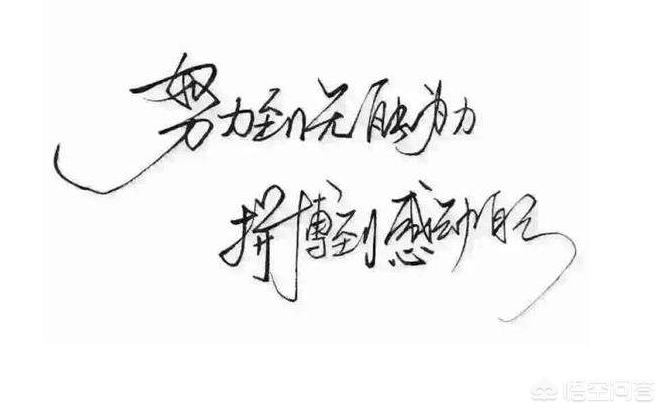 努力到无能为力
拼博到感动自己
悟空问答